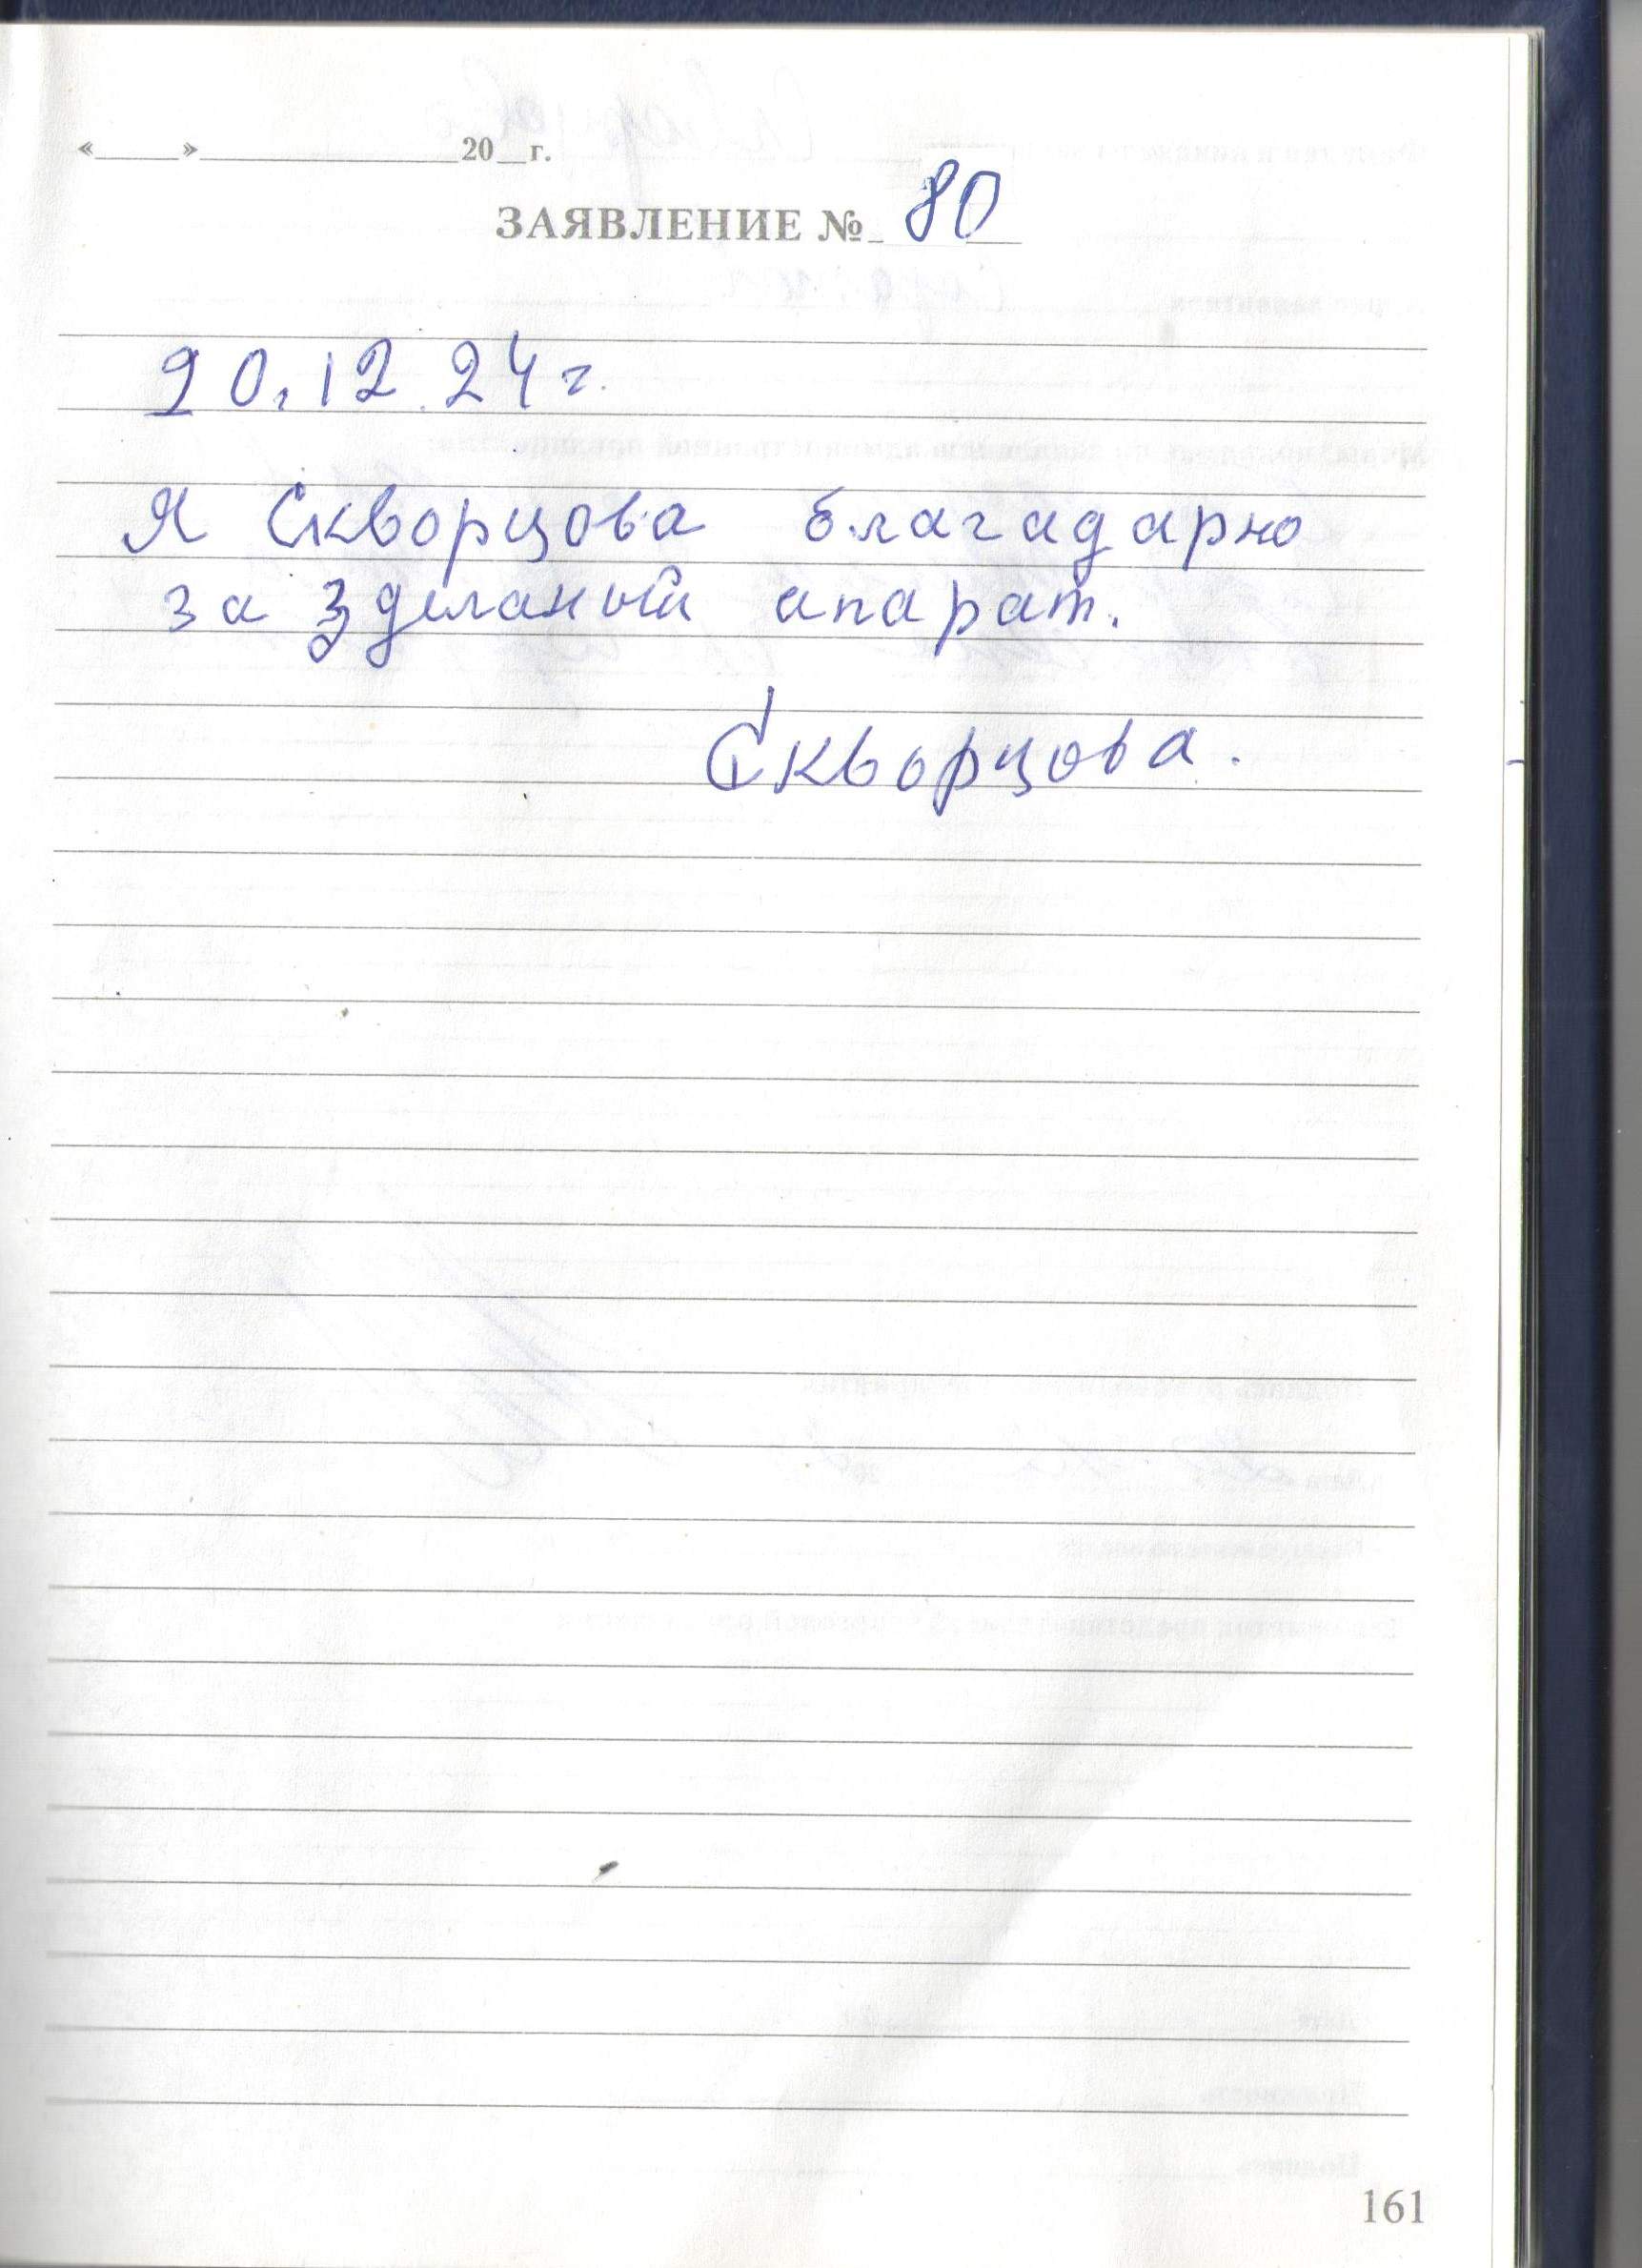 «____»____________20__г.
ЗАЯВЛЕНИЕ № 80
20.12.24г.
Я Скворцова благадарю
за зделаный апарат.
Скворцова.
161